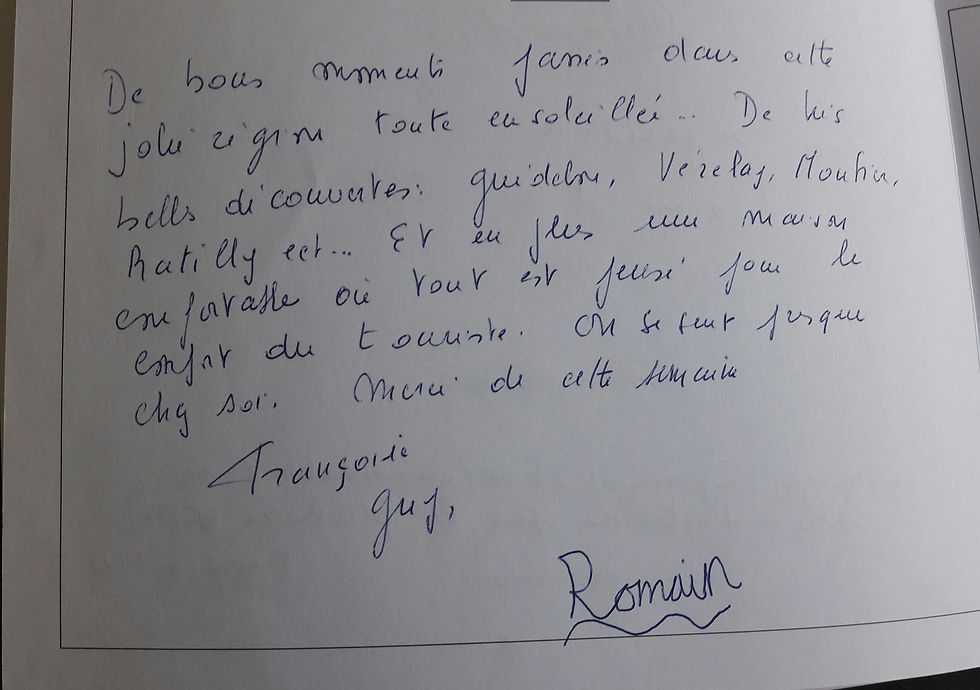 De bons moments passés dans cette
jolie région toute ensoleillée... De très
belles découvertes: guédelon, Vézelay, Moutier,
Ratilly ect... Et en plus une maison
confortable où tout est pensé pour le
confort du touriste. On se sent presque
chez soi. Merci de cette semaine
Françoise
guy,
Romain